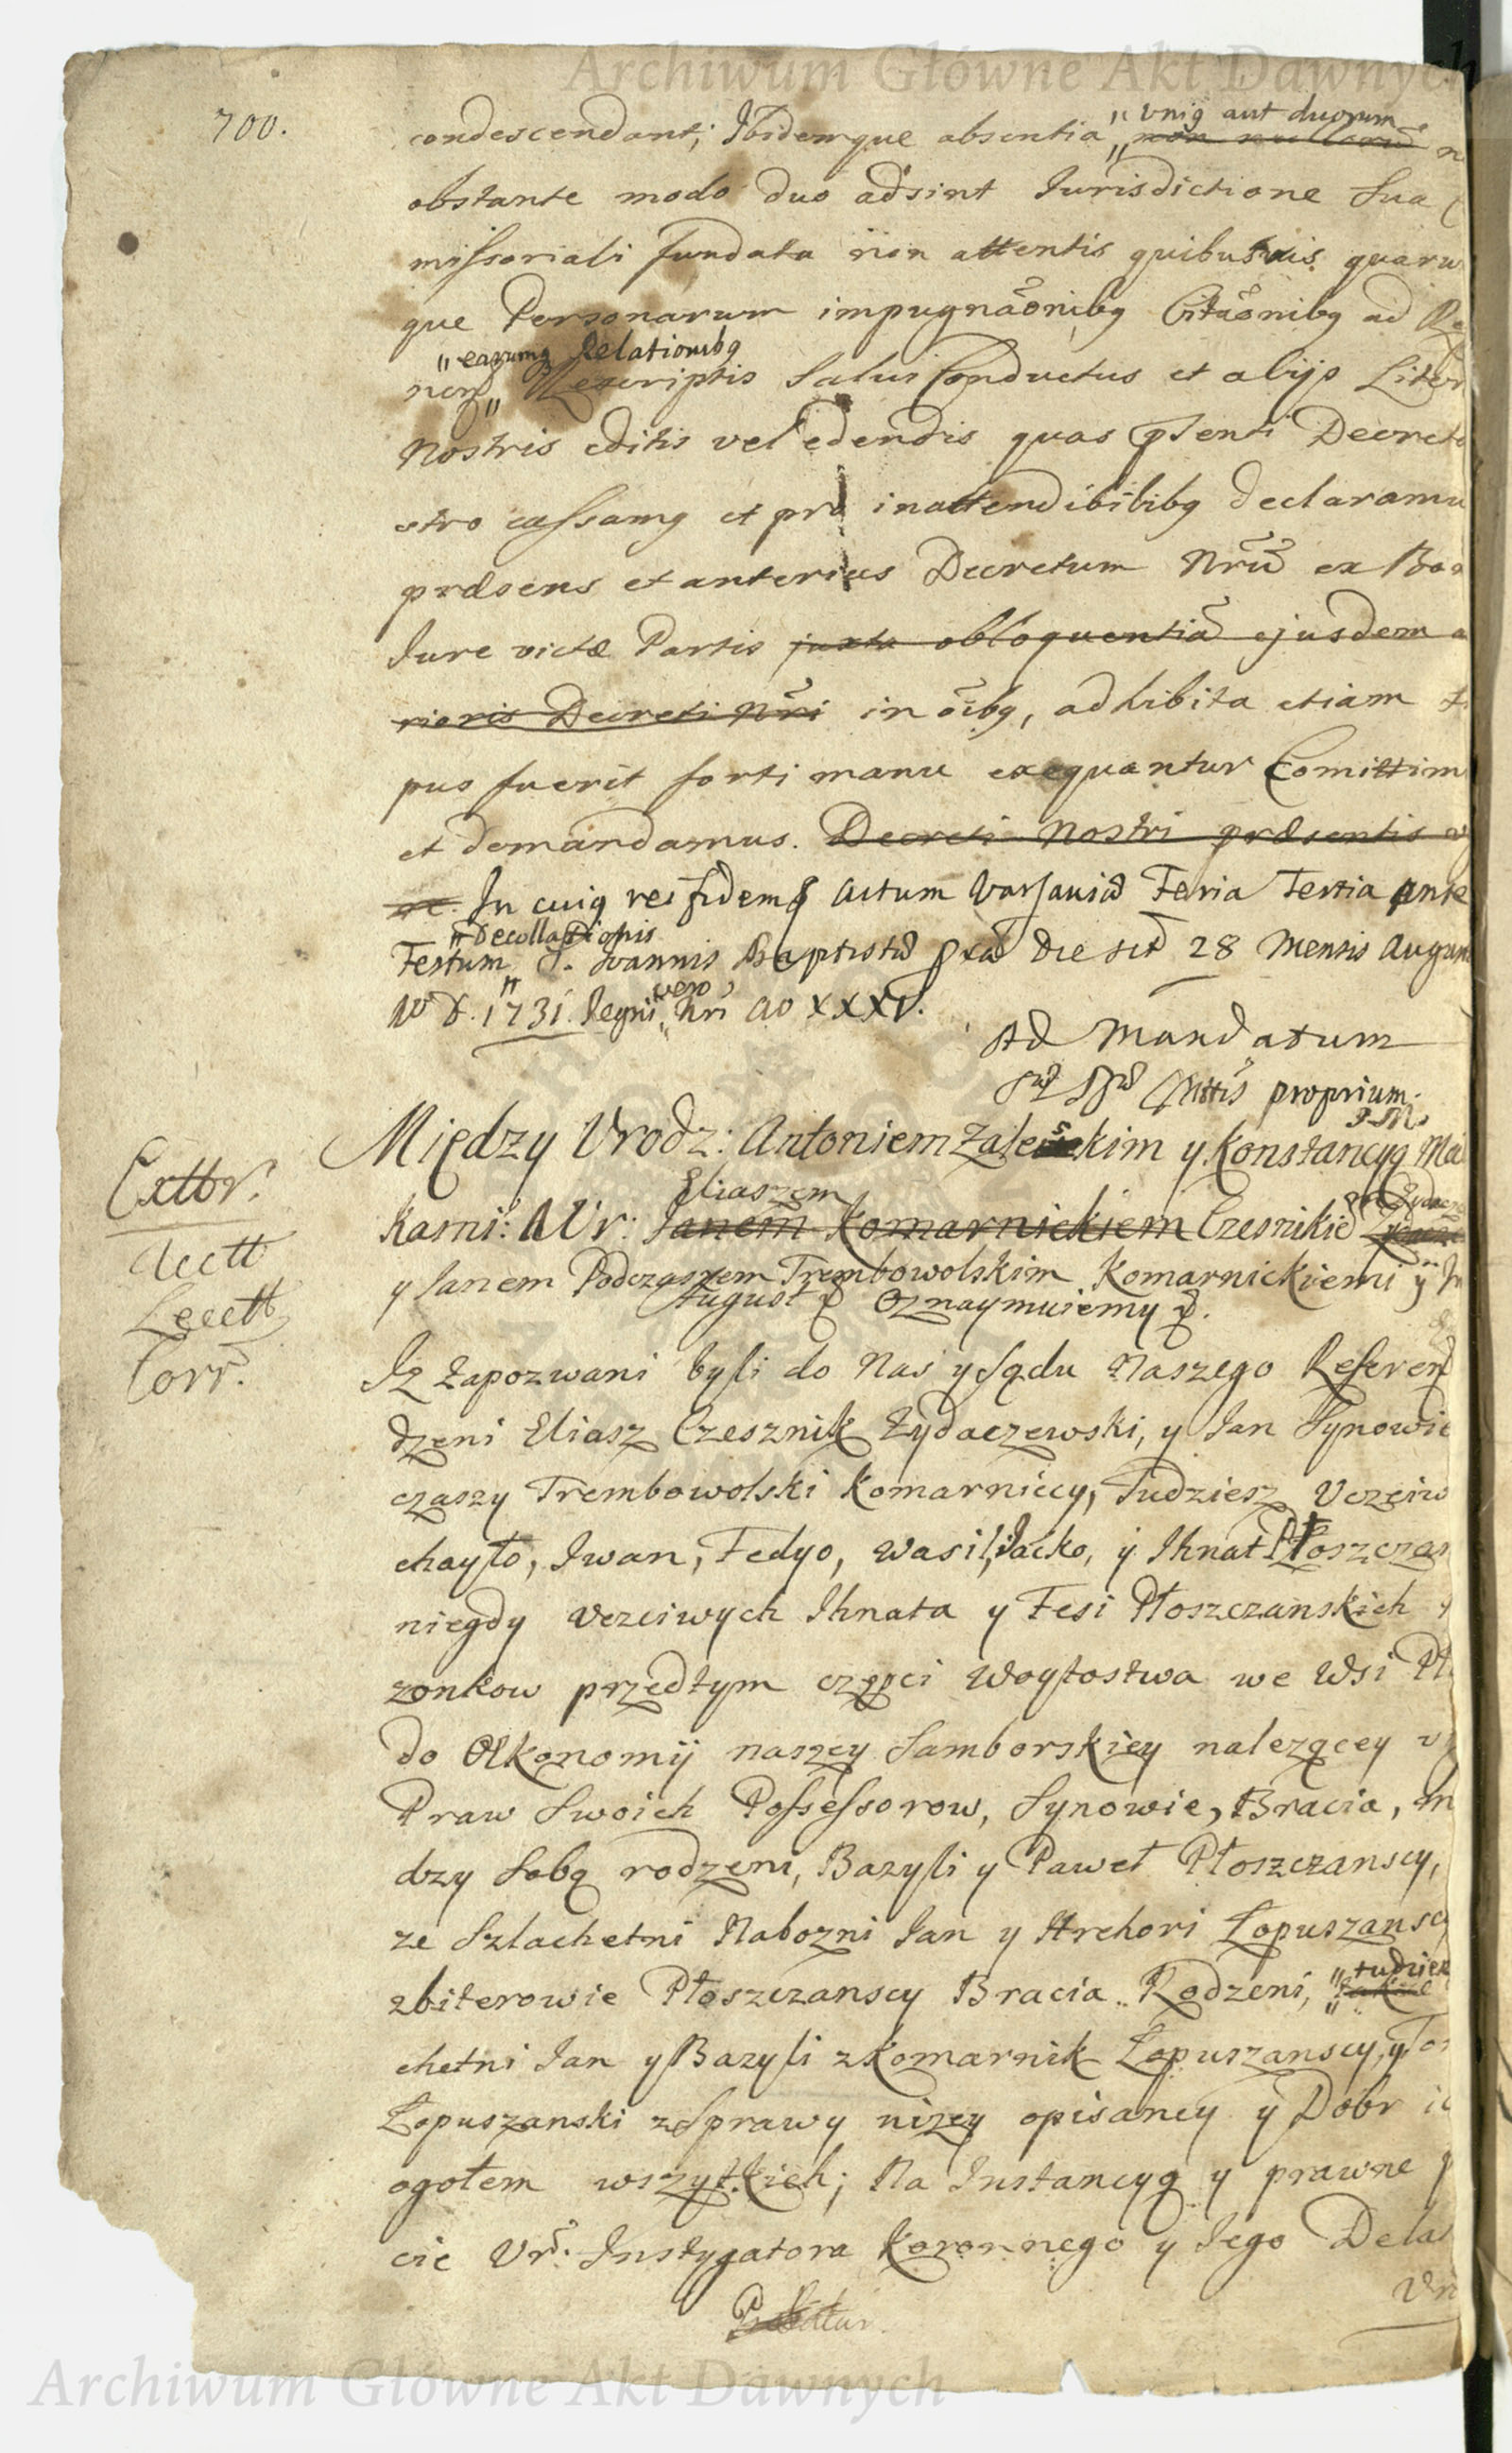 Archiwum Główne Akt Dawnych
700.
condescendant; Ibidemque absentia „ unig aut duorum „ non nullorũ
obstante modo duo adsint Iurisdictione Sua
missoriali fundata non attentis quibusvis quaru
que Personarum impugnãonibg Citãonibg ad Re
„ earumg Relationibg
non „ Rescriptis Salvi Conductus et alijs Liter
Nostris editis vel edendis quas pñsenti Decreto
stro cassamg et pro inattendibilibg declaramu
præsens et anterius Decretum Nrũ ex Bon
Iure victæ Partis juxta obloquentiã ejusdem a
rioris Decreti Nri in õibg, adhibita etiam
pus fuerit forti manu exequantur Comittim
et demandamus. Decreti Nostri præsentis
In cuig rei fidem Actum Varsaviæ Feria Tertia ante
„ Decollationis
Festum „ S. Ioannis Baptistæ pxã die scł 28 Mensis Augu
Aº D. 1731. Regni „ vero Nri Aº XXXV.
Ad Mandatum
proprium.
Między Urodz: Antoniem Zaleskim y Konstancyą Ma
kami: A Ur: Ianem Komarnickiem Czesnikiẽ
Eliaszem
y Ianem Podczaszem Trembowolskim Komarnickiemi y
August & Oznaymuiemy &.
Extbr.
Lectt
Corr.
Iz Zapozwani byli do Nas y Sądu Naszego Referen
dzeni Eliasz Czesznik Zydaczewski, y Ian Synowie
czaszy Trembowolski Komarniccy, Tudziesz Uczciw
chayło, Iwan, Fedyo, Wasil, Iacko, y Ihnat Płoszczan
niegdy Uczciwych Ihnata y Fesi Płoszczanskich y
zonkow przedtym częsci Woytostwa we Wsi Pł
do Œkonomij naszey Samborskiey nalezącey
Praw Swoich Possessorow, Synowie, Bracia, m
dzy Sobą rodzeni, Bazyli y Paweł Płoszczanscy,
ze Szlachetni Nabozni Ian y Hrehori Łopuszansc
zbiterowie Płoszczanscy Bracia Rodzeni, „ tudziez „ także
chetni Ian y Bazyli z Komarnik Łopuszanscy, y
Łopuszanski z Sprawy nizey opisaney y Dobr ic
ogołem wszytkich; Na Instancyą y prawne p
cie Ur: Instygatora Koronnego y Iego Dela
Ur
Archiwum Główne Akt Dawnych